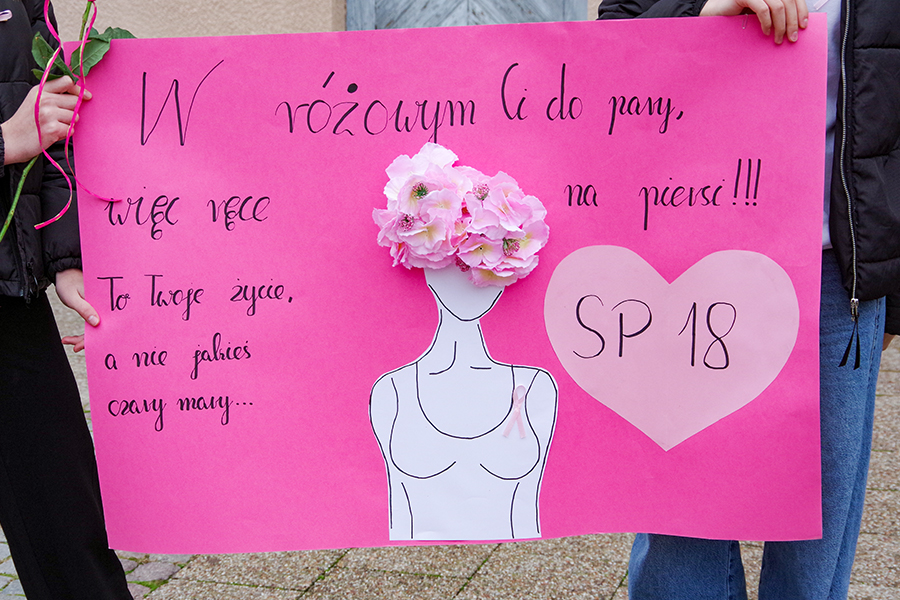 W różowym Ci do pary,
więc ręce na piersi!!!
To Twoje życie,
a nie jakieś
czary mary...
SP 18